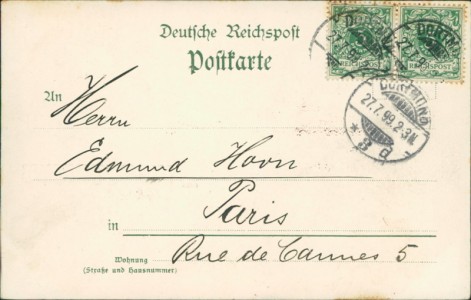 Deutsche Reichspost
Postkarte
REICHSPOST
REICHSPOST
DORTMUND
27.7.99.2-3N.
* 3 d
An
Herrn
Edmund Horn
Paris
in
Rue de Cannes 5
Wohnung
(Straße und Hausnummer)